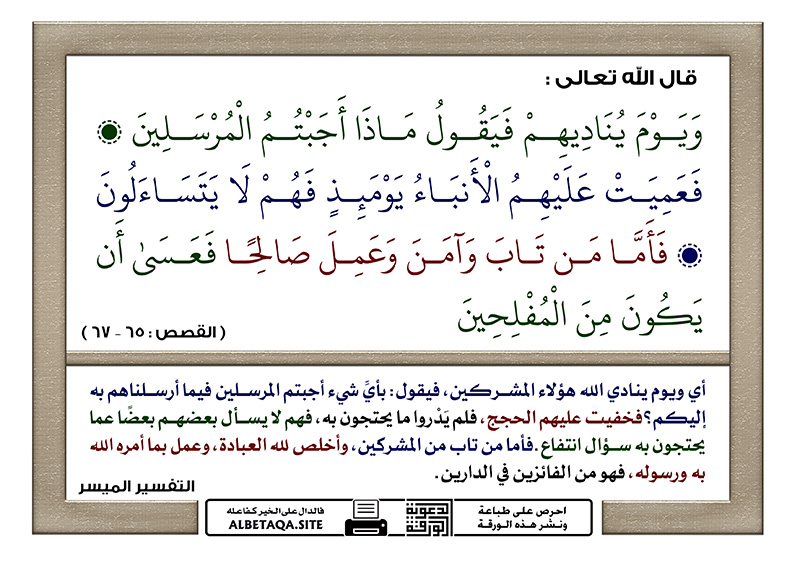 قال الله تعالى :
وَيَوْمَ يُنَادِيهِمْ فَيَقُولُ مَاذَا أَجَبْتُمُ الْمُرْسَلِينَ
فَعَمِيَتْ عَلَيْهِمُ الْأَنبَاءُ يَوْمَئِذٍ فَهُمْ لَا يَتَسَاءَلُونَ
فَأَمَّا مَن تَابَ وَآمَنَ وَعَمِلَ صَالِحًا فَعَسَىٰ أَن
يَكُونَ مِنَ الْمُفْلِحِينَ
( القصص : ٦٥ - ٦٧ )
أي ويوم ينادي الله هؤلاء المشركين، فيقول: بأيِّ شيء أجبتم المرسلين فيما أرسلناهم به
إليكم؟ فخفيت عليهم الحجج، فلم يَدْروا ما يحتجون به، فهم لا يسأل بعضهم بعضًا عما
يحتجون به سؤال انتفاع. فأما من تاب من المشركين، وأخلص لله العبادة، وعمل بما أمره الله
به ورسوله، فهو من الفائزين في الدارين.
التفسير الميسر
احرص على طباعة
ونشر هذه الورقة
الورقة
الدعوية
فالدال على الخير كفاعله
ALBETAQA.SITE